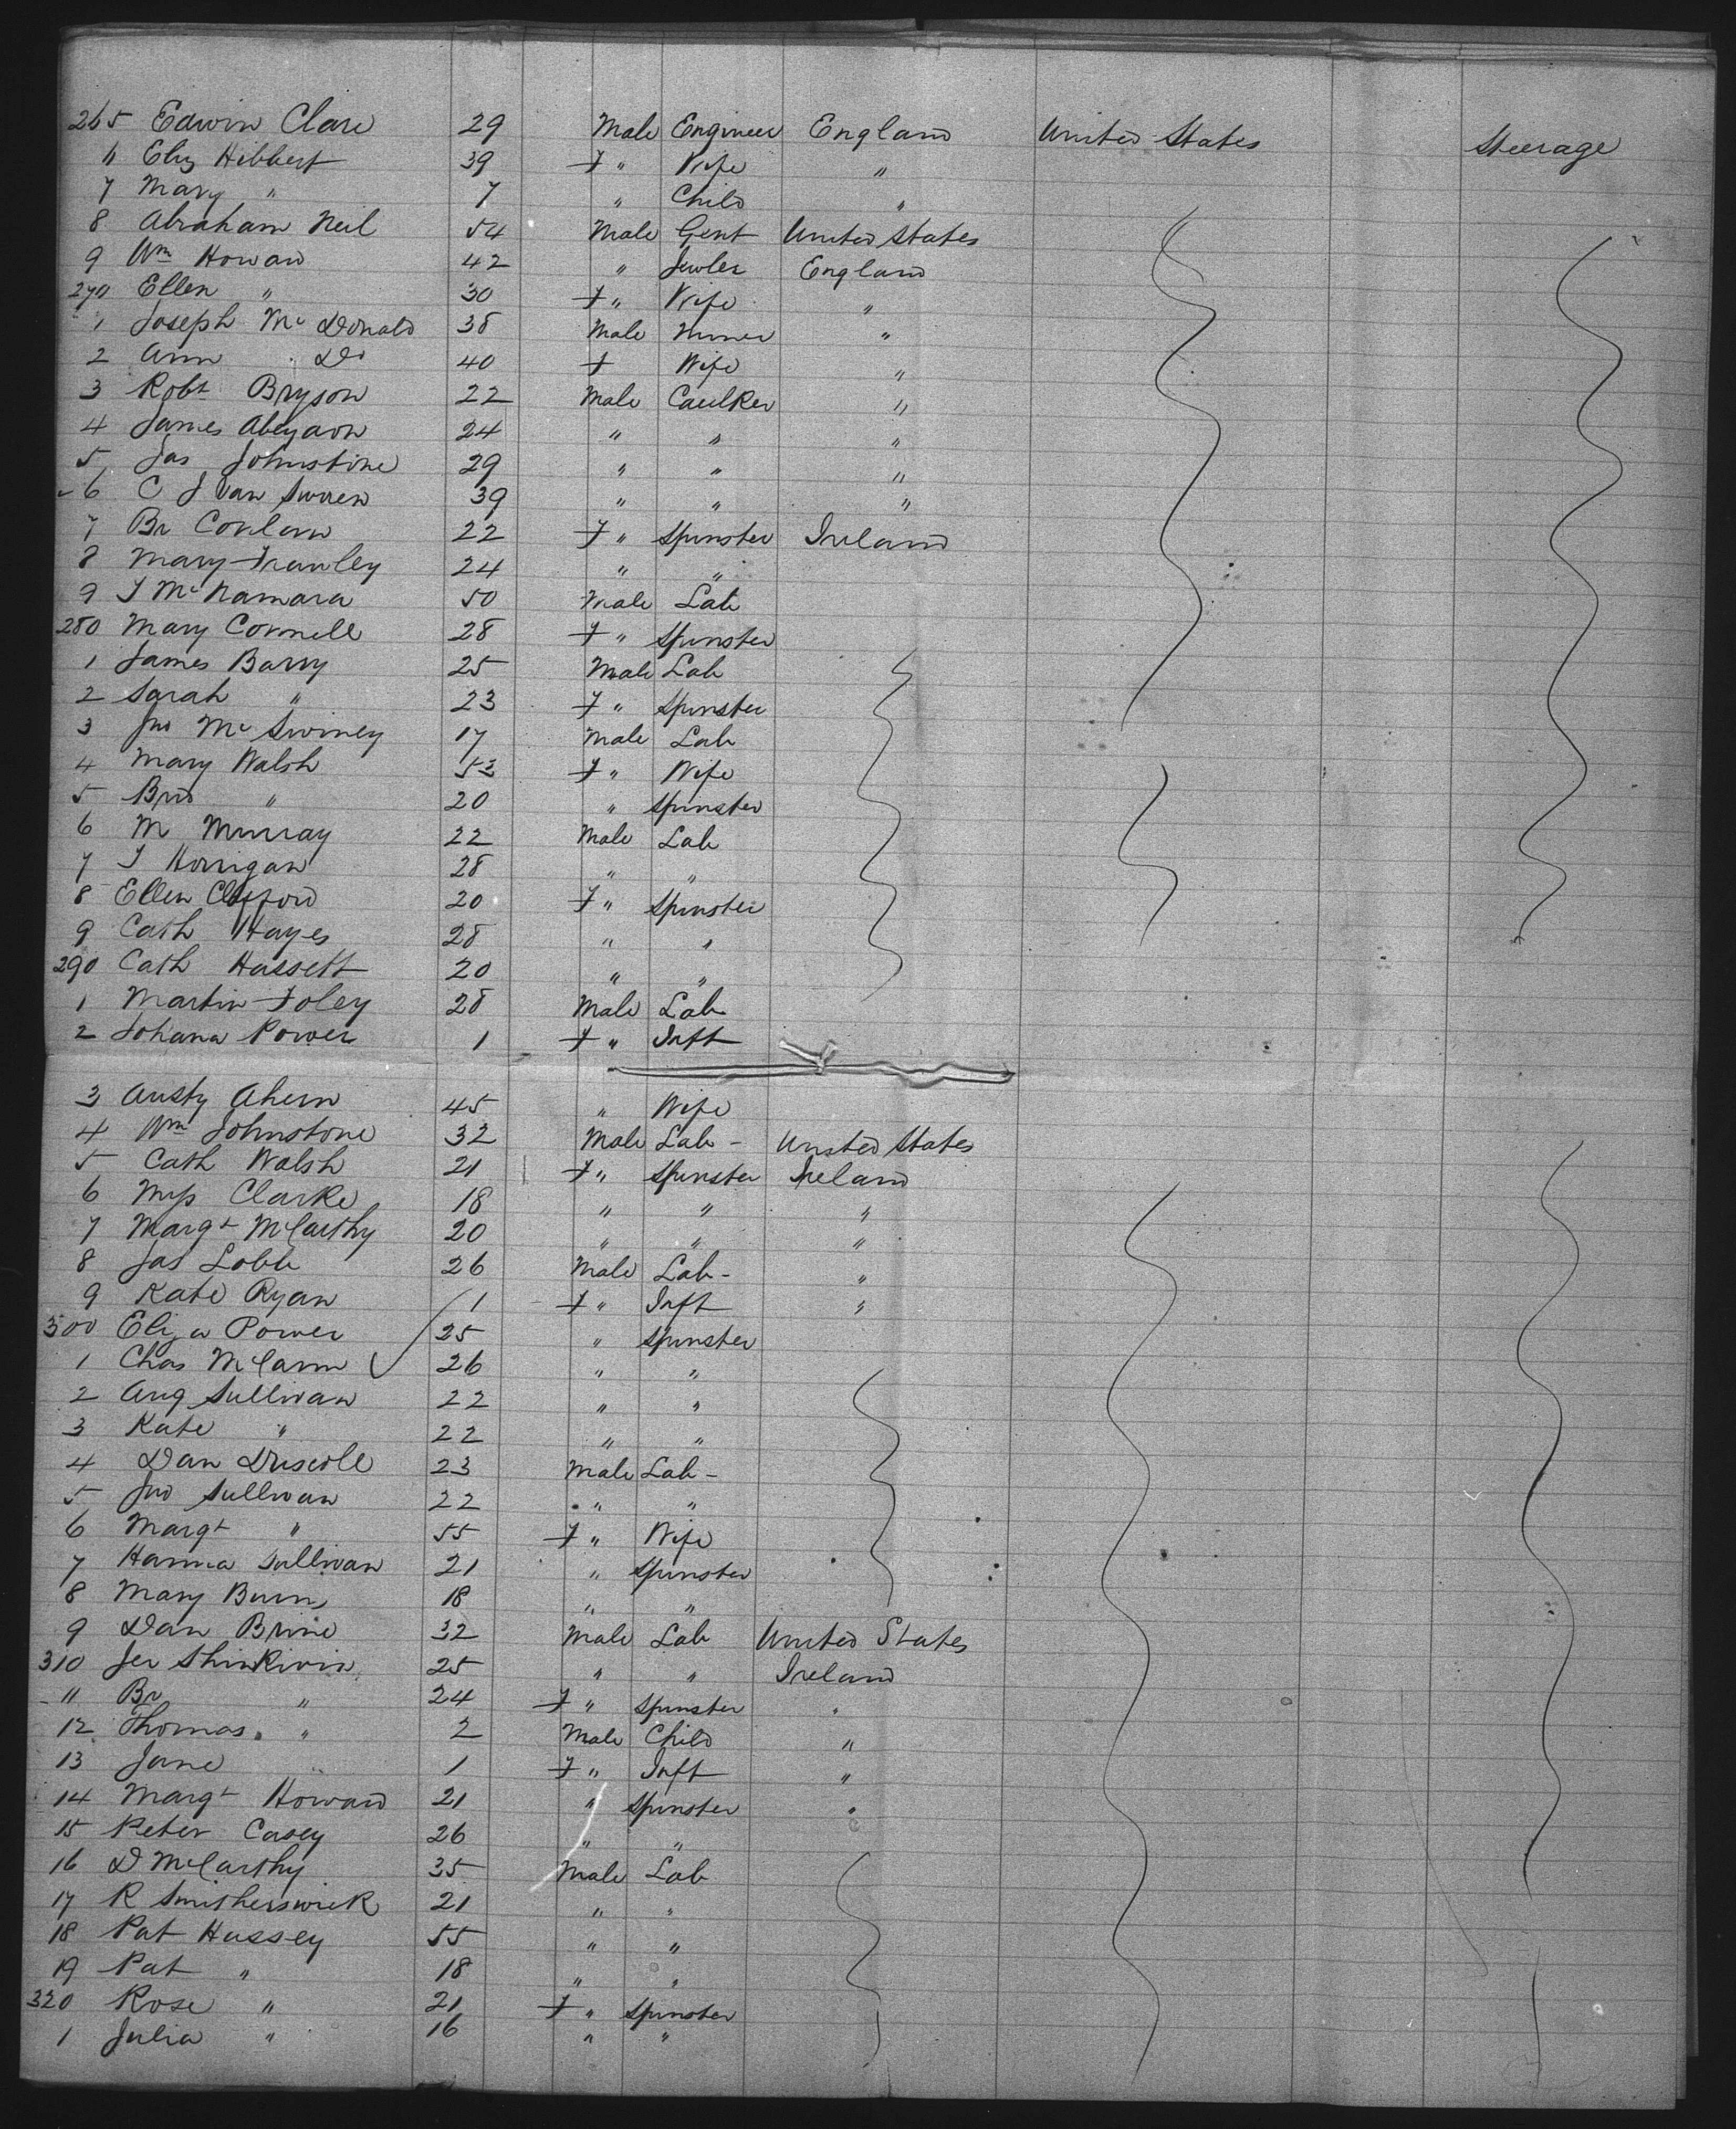 265 Edwin Clare 29 Male Engineer England United States Steerage
" Eliz Hibbert 39 F " Wife "
7 Mary " 7 " Child "
8 Abraham Neil 54 Male Gent United States
9 Wm Howard 42 " Jewler England
270 Ellen " 30 F " Wife "
1 Joseph Mc Donald 38 Male "
2 Ann Do 40 F Wife "
3 Robt Bryson 22 Male Caulker "
4 James 24 " " "
5 Jas Johnstine 29 " " "
6 C J Van 39 " " "
7 Br Conlan 22 F " Spinster Ireland
8 Mary Frawley 24 " "
9 T McNamara 50 Male Lab
280 Mary Connell 28 F " Spinster
1 James Barry 25 Male Lab
2 Sarah " 23 F " Spinster
3 Jno Mc Swiney 17 Male Lab
4 Mary Walsh 53 F " Wife
5 Brid " 20 " Spinster
6 M Murray 22 Male Lab
7 T Horrigan 28 " "
8 Ellen Clifford 20 F " Spinster
9 Cath Hayes 28 " "
290 Cath Hassett 20 " "
1 Martin Foley 28 Male Lab
2 Johana Power 1 F " Inft
3 Austy Ahern 45 " Wife
4 Wm Johnstone 32 Male Lab - United States
5 Cath Walsh 21 F " Spinster Ireland
6 Miss Clarke 18 " " "
7 Margt McCarthy 20 " " "
8 Jas Lobb 26 Male Lab - "
9 Kate Ryan 1 F " Inft "
300 Eliza Power 25 " Spinster
1 Chas McCann 26 " "
2 Aug Sullivan 22 " "
3 Kate " 22 " "
4 Dan Driscoll 23 Male Lab -
5 Jno Sullivan 22 " "
6 Margt " 55 F " Wife
7 Hanna Sullivan 21 " Spinster
8 Mary Burns 18 " "
9 Dan Brine 32 Male Lab United States
310 Jer Shinkwin 25 " " Ireland
11 Br " 24 F " Spinster "
12 Thomas " 2 Male Child "
13 Jane " 1 F " Inft "
14 Margt Howard 21 " Spinster "
15 Peter Casey 26 " "
16 D McCarthy 35 Male Lab
17 R Smitherswick 21 " "
18 Pat Hussey 55 " "
19 Pat " 18 " "
320 Rose " 21 F " Spinster
1 Julia " 16 " "